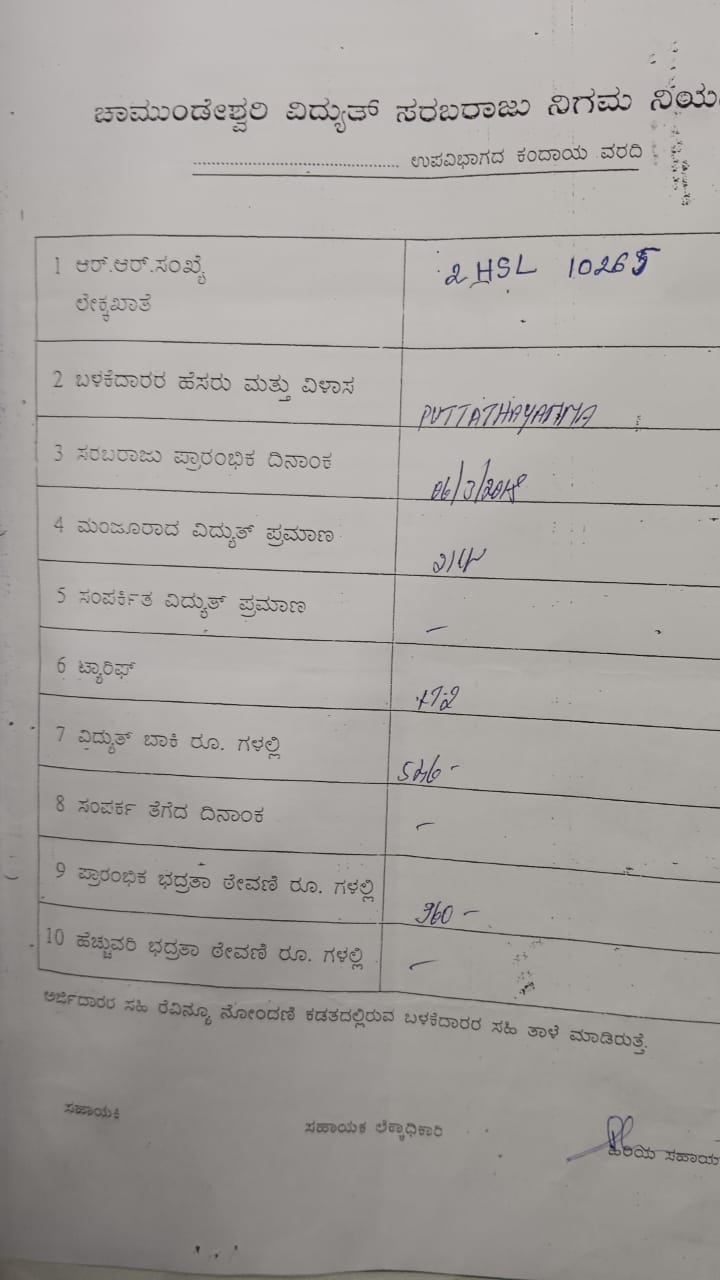 ಚಾಮುಂಡೇಶ್ವರಿ ವಿದ್ಯುತ್ ಸರಬರಾಜು ನಿಗಮ ನಿಯ
........................................ ಉಪವಿಭಾಗದ ಕಂದಾಯ ವರದಿ
1 ಆರ್.ಆರ್.ಸಂಖ್ಯೆ 2 HSL 10265
ಲೇಕ್ಕಖಾತೆ
2 ಬಳಕೆದಾರರ ಹೆಸರು ಮತ್ತು ವಿಳಾಸ PUTTATHAYAMMA
3 ಸರಬರಾಜು ಪ್ರಾರಂಭಿಕ ದಿನಾಂಕ 06/3/2018
4 ಮಂಜೂರಾದ ವಿದ್ಯುತ್ ಪ್ರಮಾಣ
5 ಸಂಪರ್ಕಿತ ವಿದ್ಯುತ್ ಪ್ರಮಾಣ –
6 ಟ್ಯಾರಿಫ್
7 ವಿದ್ಯುತ್ ಬಾಕಿ ರೂ. ಗಳಲ್ಲಿ
8 ಸಂಪರ್ಕ ತೆಗೆದ ದಿನಾಂಕ –
9 ಪ್ರಾರಂಭಿಕ ಭದ್ರತಾ ಠೇವಣಿ ರೂ. ಗಳಲ್ಲಿ 960 –
10 ಹೆಚ್ಚುವರಿ ಭದ್ರತಾ ಠೇವಣಿ ರೂ. ಗಳಲ್ಲಿ –
ಅರ್ಜಿದಾರರ ಸಹಿ ರೆವಿನ್ಯೂ ನೋಂದಣಿ ಕಡತದಲ್ಲಿರುವ ಬಳಕೆದಾರರ ಸಹಿ ತಾಳೆ ಮಾಡಿರುತ್ತೆ.
ಸಹಾಯಕಿ ಸಹಾಯಕ ಲೆಕ್ಕಾಧಿಕಾರಿ ಹಿರಿಯ ಸಹಾಯ